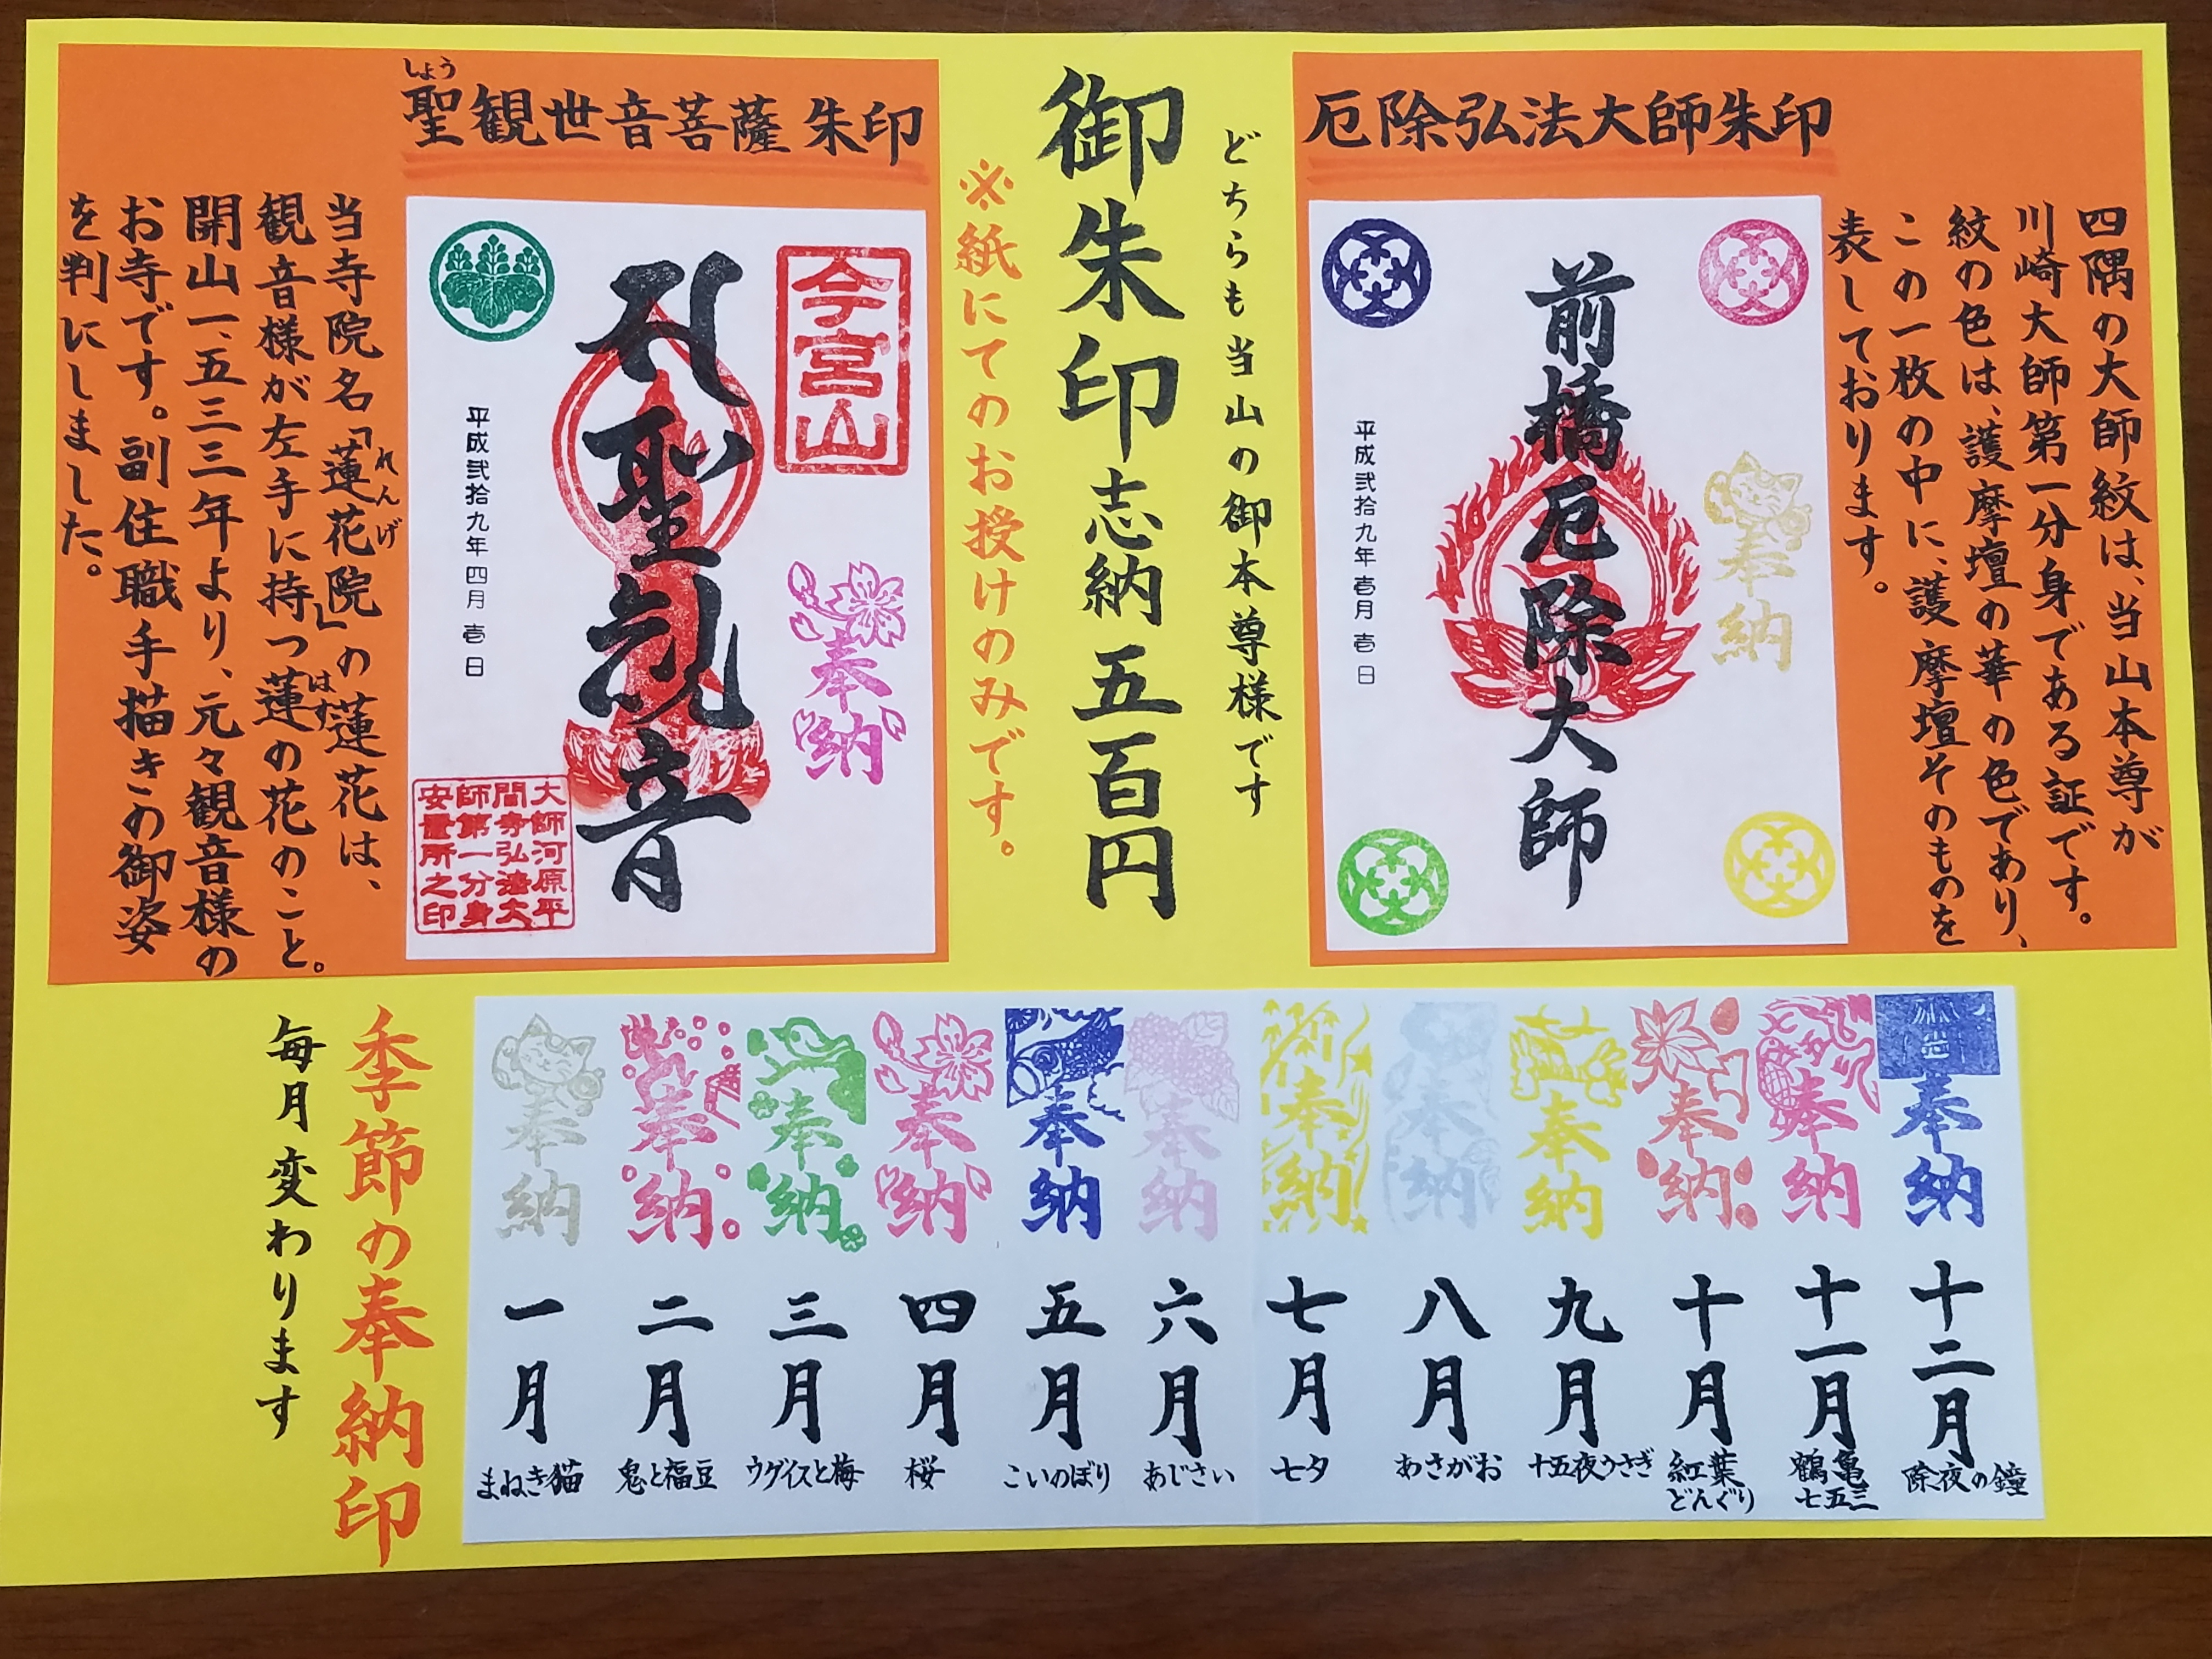 厄除弘法大師朱印
四隅の大師紋は、当山本尊が
川崎大師第一分身である証です。
紋の色は、護摩壇の華の色であり、
この一枚の中に、護摩壇そのものを
表しております。
奉納
前橋厄除大師
平成弐拾九年壱月壱日
どちらも当山の御本尊様です
御朱印志納五百円
※紙にてのお授けのみです。
しょう
聖観世音菩薩朱印
今宮山
奉納
聖観音
平成弐拾九年四月壱日
大師河原平
間寺弘法大
師第一分身
安置所之印
れんげ
当寺院名「蓮花院」の蓮花は、
はす
観音様が左手に持つ蓮の花のこと。
開山一、五三三年より、元々観音様の
お寺です。副住職手描きの御姿
を判にしました。
季節の奉納印
毎月変わります
奉納
一月
まねき猫
奉納
二月
鬼と福豆
奉納
三月
ウグイスと梅
奉納
四月
桜
奉納
五月
こいのぼり
奉納
六月
あじさい
奉納
七月
七夕
奉納
八月
あさがお
奉納
九月
十五夜うさぎ
奉納
十月
紅葉
どんぐり
奉納
十一月
鶴亀
七五三
奉納
十二月
除夜の鐘